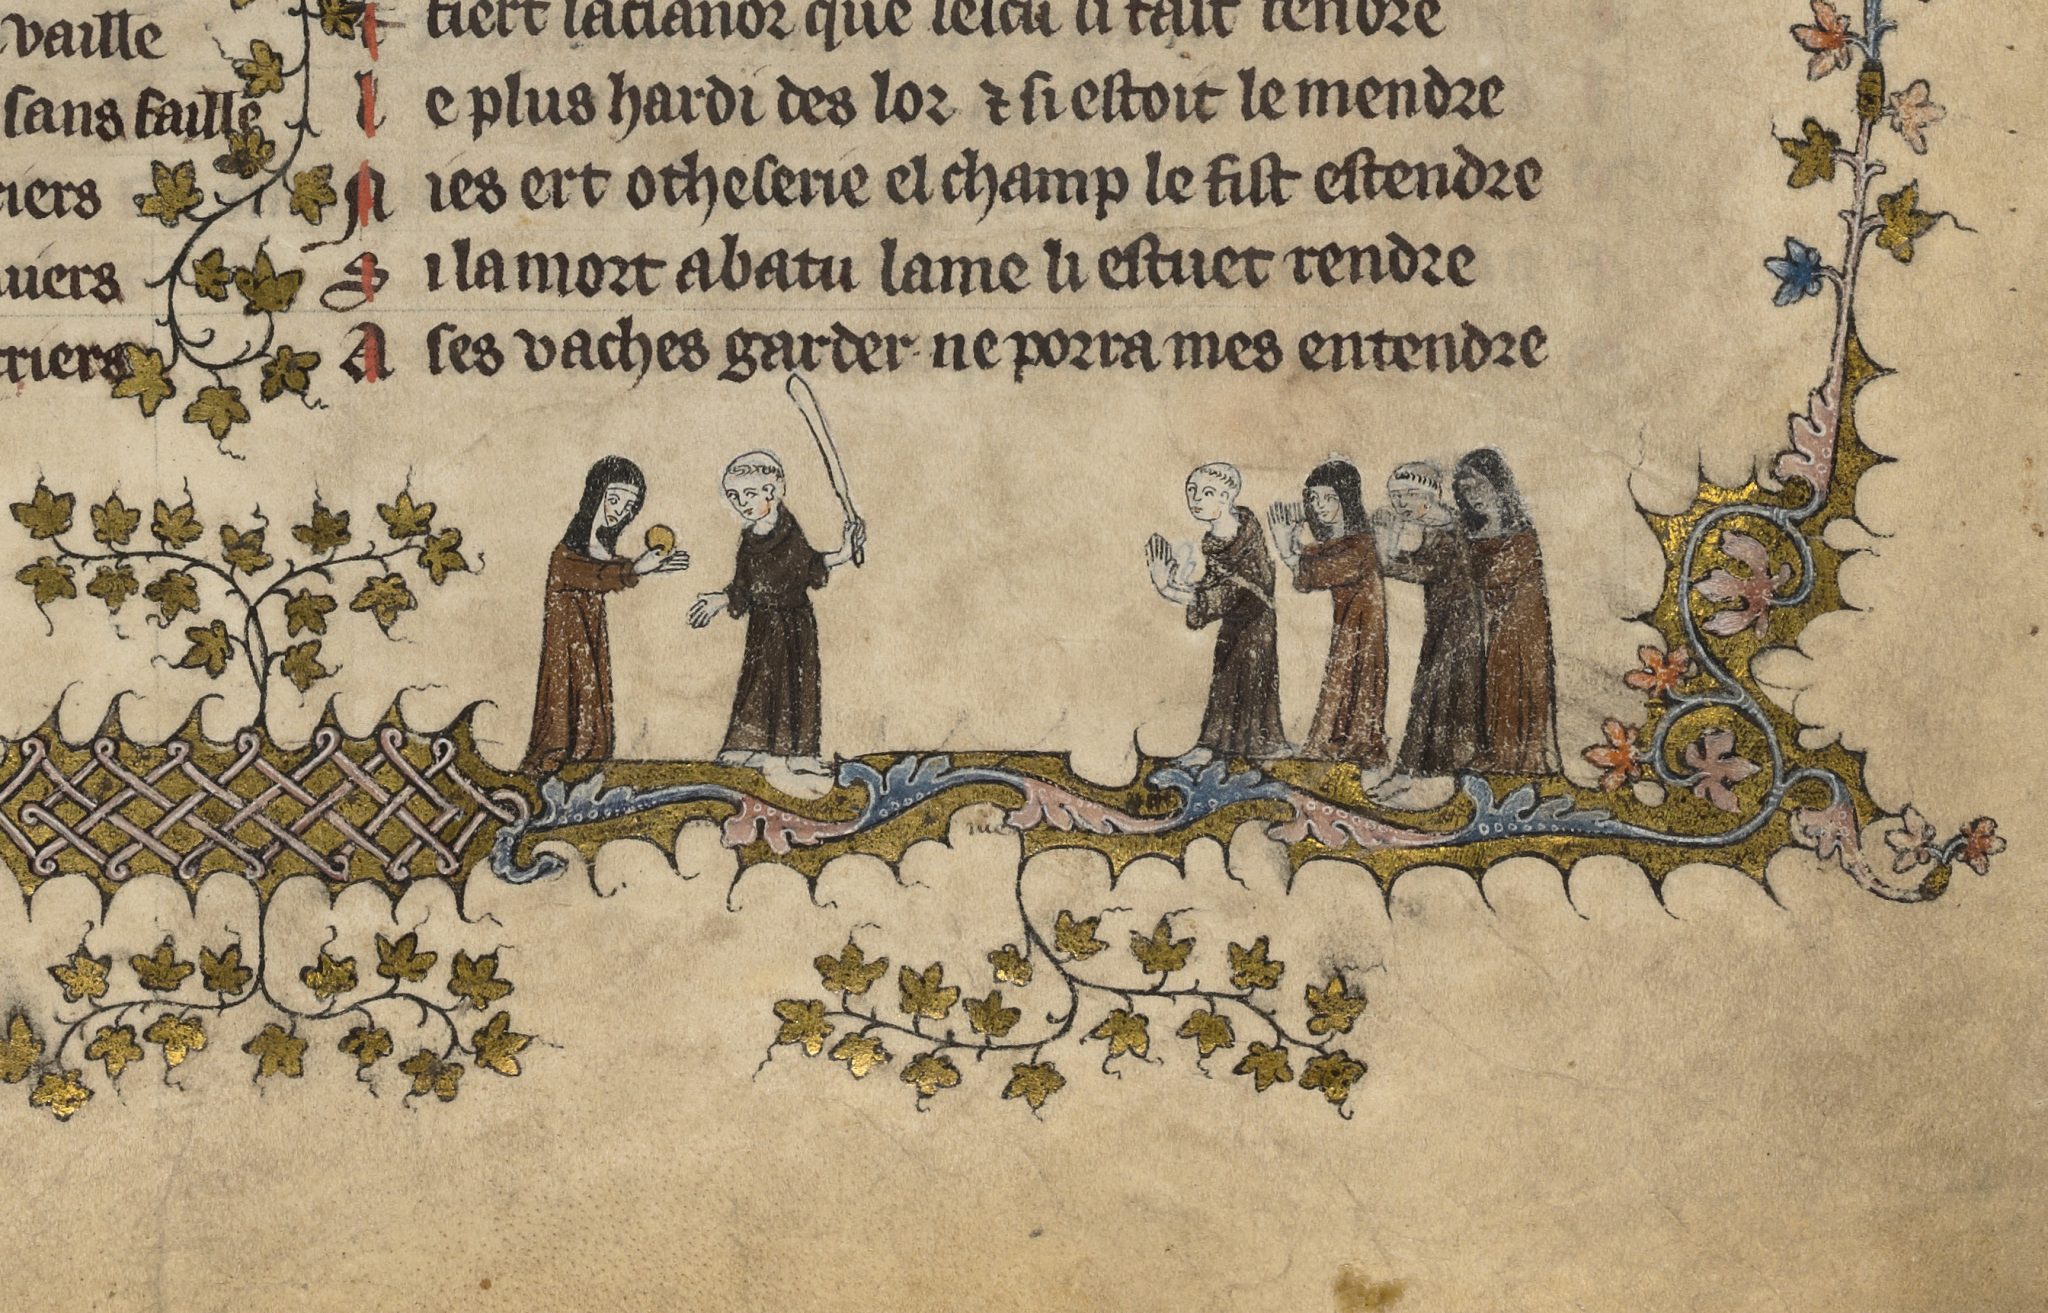 vaille
sans faille
riers
uiers
triers
tiert laclanor que lescu li fait fendre
l e plus hardi des lor ⁊ si estoit le mendre
N ies ert otheserie el champ le fist estendre
S i la mort abatu lame li estuet rendre
A ses vaches garder ne porra mes entendre